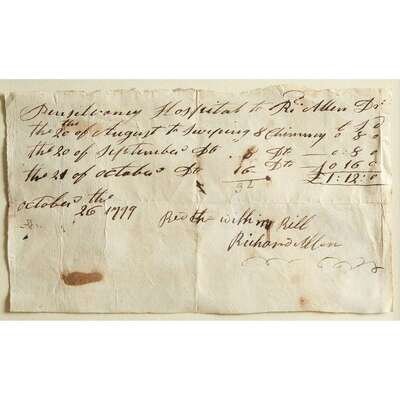 Penselvaney Hospital to Rd Allen Dr
the 20 of August to Sweping 8 Chimney 0 8 0
the 20 of September Do 8 Do 0 : 8 0
the 21 of October Do 16 Do 0 16 0
32 £1 : 12 : 0
October the
26 1799 Recd the within Bill
Richard Allen